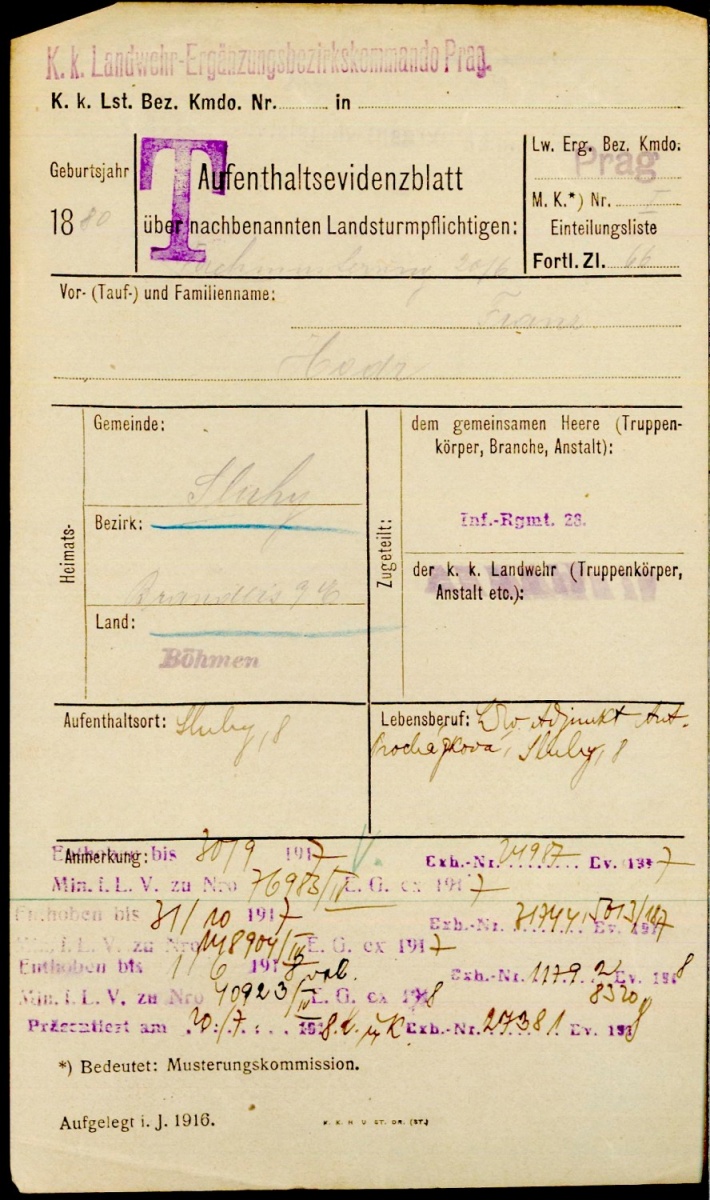 K. k. Landwehr-Ergänzungsbezirkskommando Prag.
K. k. Lst. Bez. Kmdo. Nr. in
Geburtsjahr
1880
T
Aufenthaltsevidenzblatt
über nachbenannten Landsturmpflichtigen:
20/6
Lw. Erg. Bez. Kmdo.
Prag
M. K.*) Nr. I
Einteilungsliste
Fortl. Zl. 66
Vor- (Tauf-) und Familienname:
Franz
Hodr
Heimats-
Gemeinde:
Sluhy
Bezirk:
Brandeis a/E
Land:
Böhmen
Zugeteilt:
dem gemeinsamen Heere (Truppen-
körper, Branche, Anstalt):
Inf.-Rgmt. 28.
der k. k. Landwehr (Truppenkörper,
Anstalt etc.):
Aufenthaltsort: Sluhy, 8
Lebensberuf: Adjunkt Ant.
Procházková, Sluhy, 8
Anmerkung:
Enthoben bis 30/9 1917 Exh.-Nr. 24987 Ev. 1917
Min. f. L. V. zu Nro 76983/IV E. G. ex 1917
Enthoben bis 31/10 1917 Exh.-Nr. 31744 Ev. 1917
Min. f. L. V. zu Nro 148904/IV E. G. ex 1917
Enthoben bis 1/6 1918 Exh.-Nr. 1179 Ev. 1918
Min. f. L. V. zu Nro 40923/IV E. G. ex 1918 8320
Präsentiert am 20/7 1918 Exh.-Nr. 27381 Ev. 1918
*) Bedeutet: Musterungskommission.
Aufgelegt i. J. 1916.
K. K. H. U. ST. DR. (ST.)